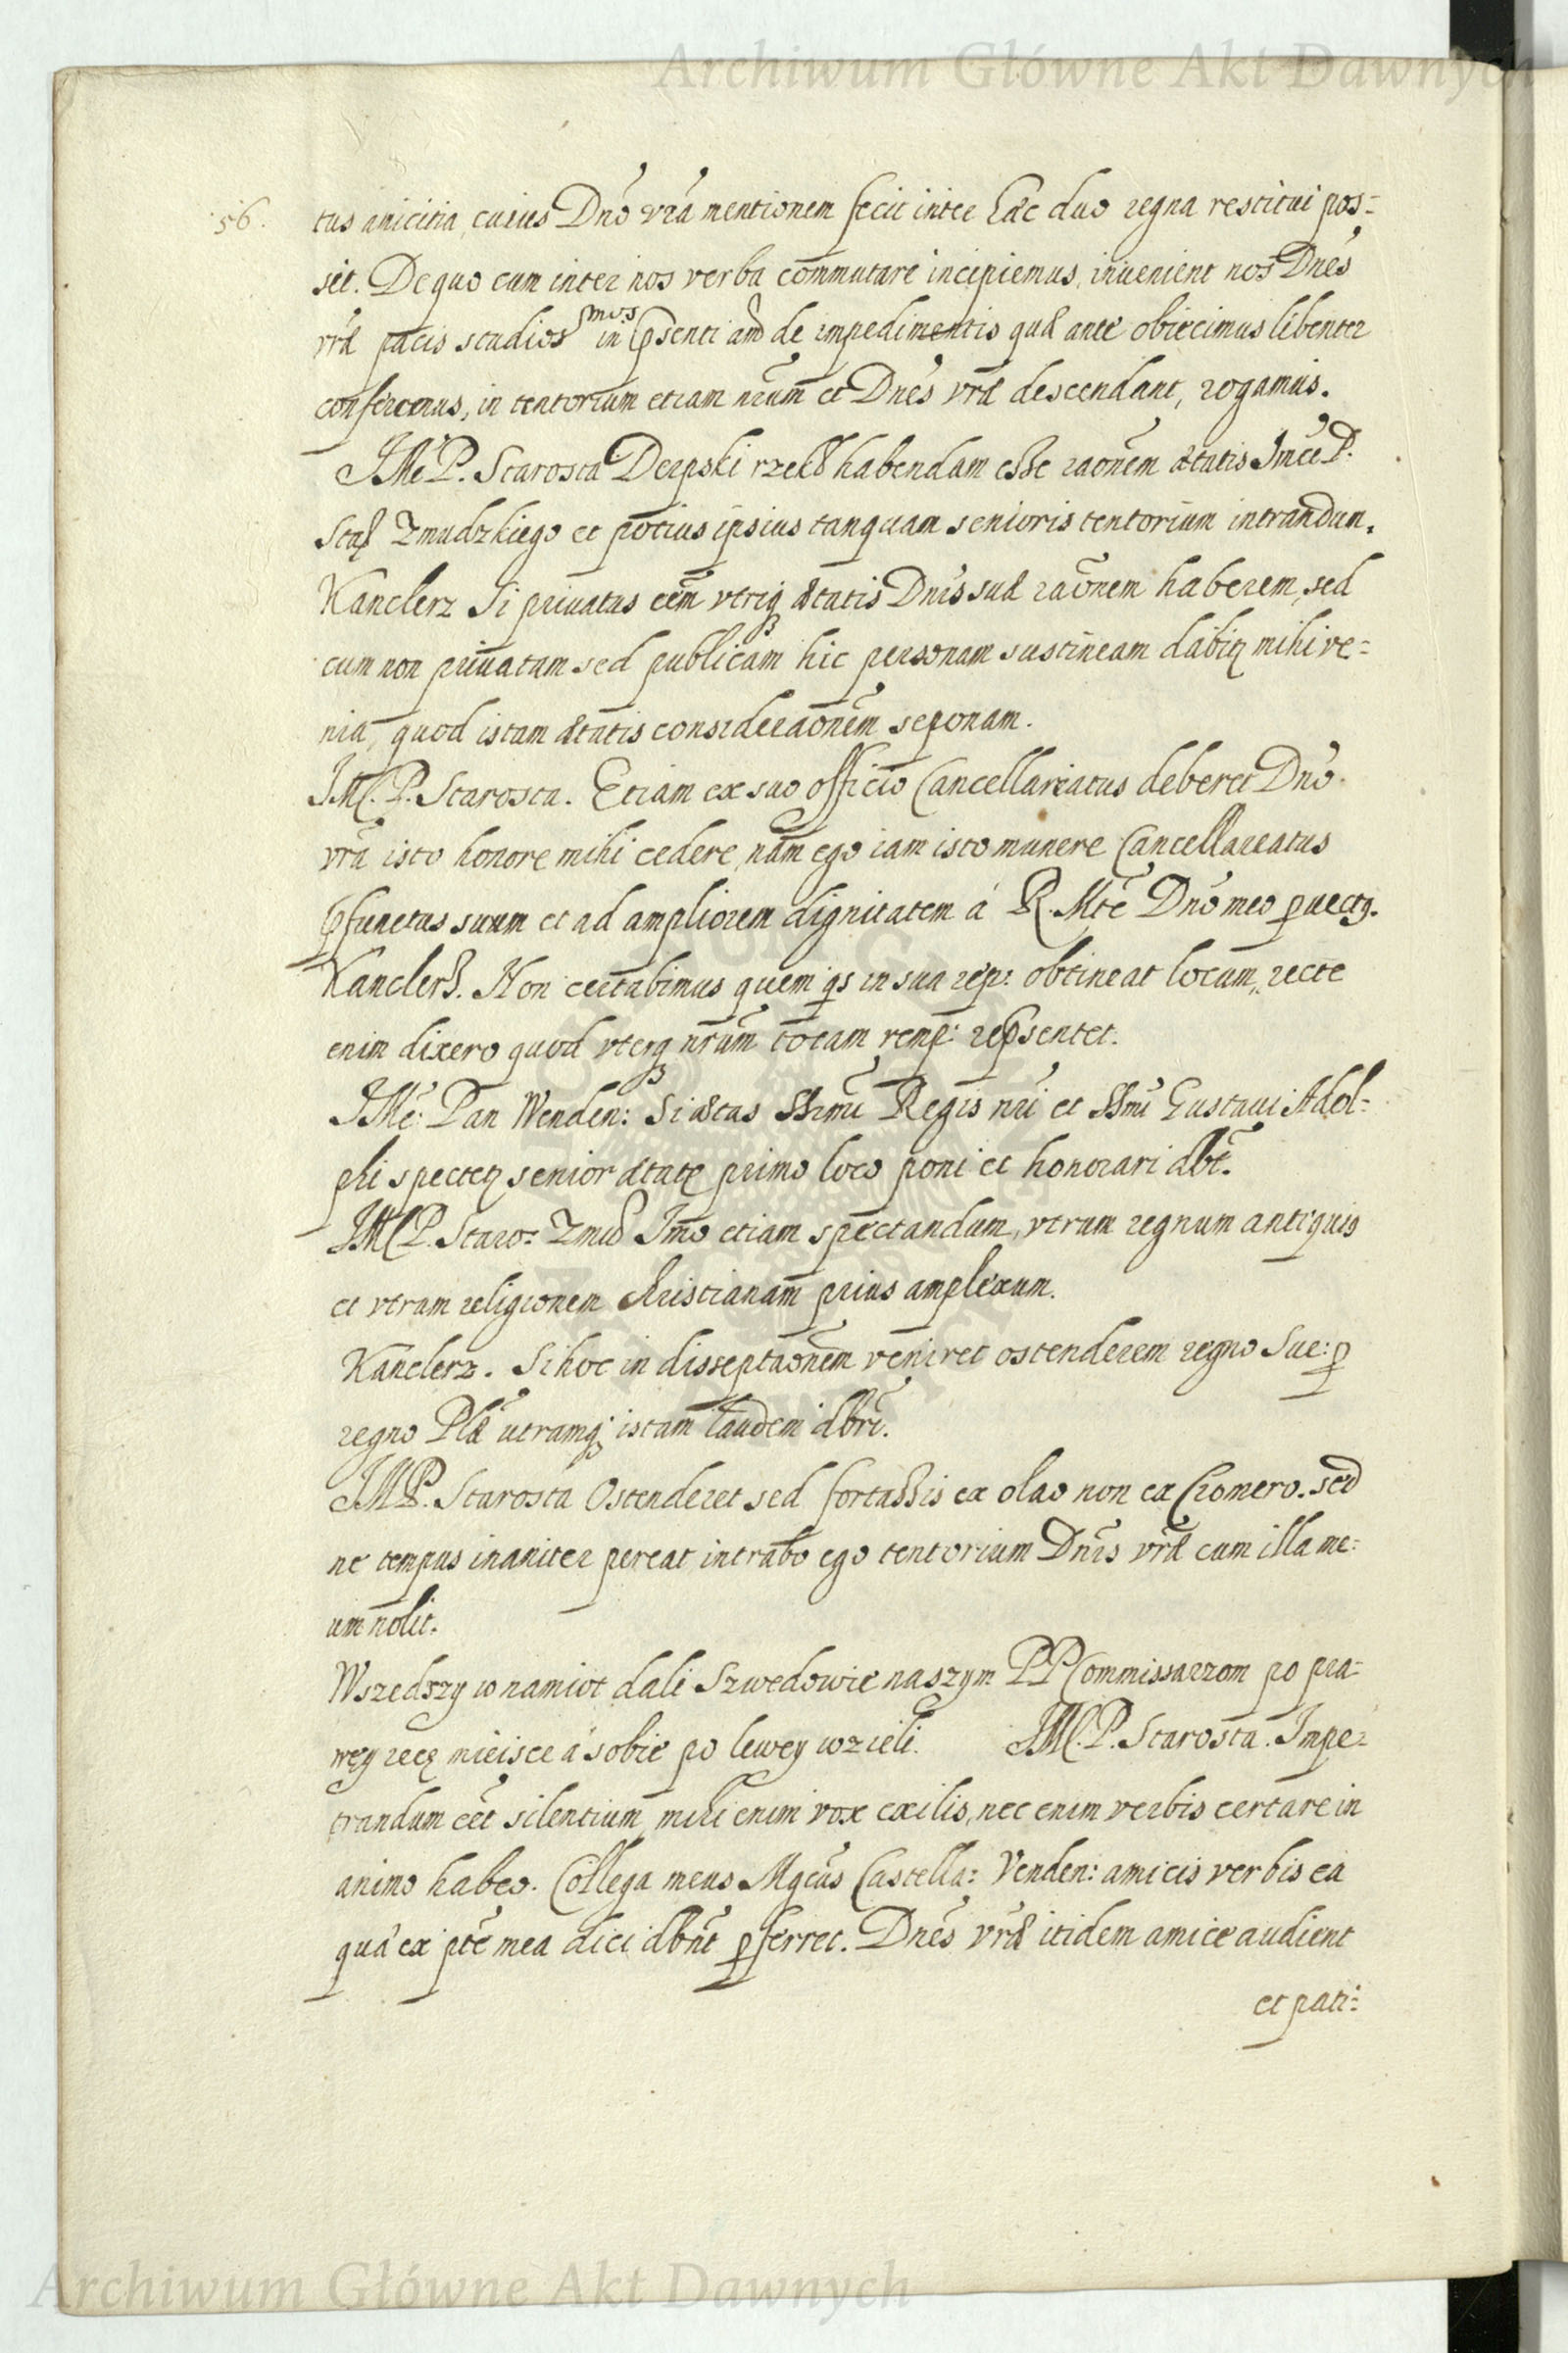 Archiwum Główne Akt Dawnych
56.
tus amicitia, cuius Dnō vrā mentionem fecit inter hæc duo regna restitui pos=
sit. De quo cum inter nos verba commutare incipiemus, inuenient nos Dnēs
vræ pacis studiosmos in psenti aūd de impedimentis quæ ante obiecimus libenter
conferemus, in tentorium etiam nrūm et Dnēs vræ descendant, rogamus.
JMć P. Starosta Derpski rzekł habendam esse raōnem ætatis Jmci P.
Staṛ Zmudzkiego et potius ipsius tanquam senioris tentorium intrandum.
Kanclerz Si priuatus eēm vtriq ætatis Dnīs suæ raōnem haberem, sed
cum non priuatam sed publicam hic personam sustineam dabitꝛ mihi ve=
nia, quod istam ætatis consideraōnem seponam.
JMć. P. Starosta. Etiam ex suo officio Cancellariatus deberet Dnō
vrā isto honore mihi cedere, nam ego iam isto munere Cancellareatus
pfunctus suum et ad ampliorem dignitatem á R. Mtē Dnō meo puectꝯ.
Kanclerz. Non certabimus quem qs in sua rep: obtineat locum, recte
enim dixero quod vterq nrūm totam remp: repsentet.
JMć: Pan Wenden: Si ætas SSrmi Regis nrī et SSmi Gustaui Adol=
phi spectetꝛ senior ætate primo loco poni et honorari dbt.
JMć P. Staro: Zmud Jmo etiam spectandum, vtrum regnum antiquiꝯ
et vtrum religionem christianam prius amplexum.
Kanclerz. Si hoc in disseptaōnem veniret ostenderem regno Sue: p
regno Plæ utramq; istam laudem dbri.
JMP. Starosta Ostenderet sed fortassis ex olao non ex Cromero. sed
ne tempus inaniter pereat intrabo ego tentorium Dnīs vræ cum illa me=
um nolit.
Wszedszy w namiot dali Szwedowie naszym PP Commissarzom po pra=
wey ręcę mieisce á sobie po lewey wzieli. JMć. P. Starosta. Impe=
trandum eēt silentium, mihi enim vox exilis, nec enim verbis certare in
animo habeo. Collega meus Mgcūs Castella: Venden: amicis verbis ea
quæ ex pte mea dici dbnt pferret. Dnēs vræ itidem amice audient
et pati=
Archiwum Główne Akt Dawnych